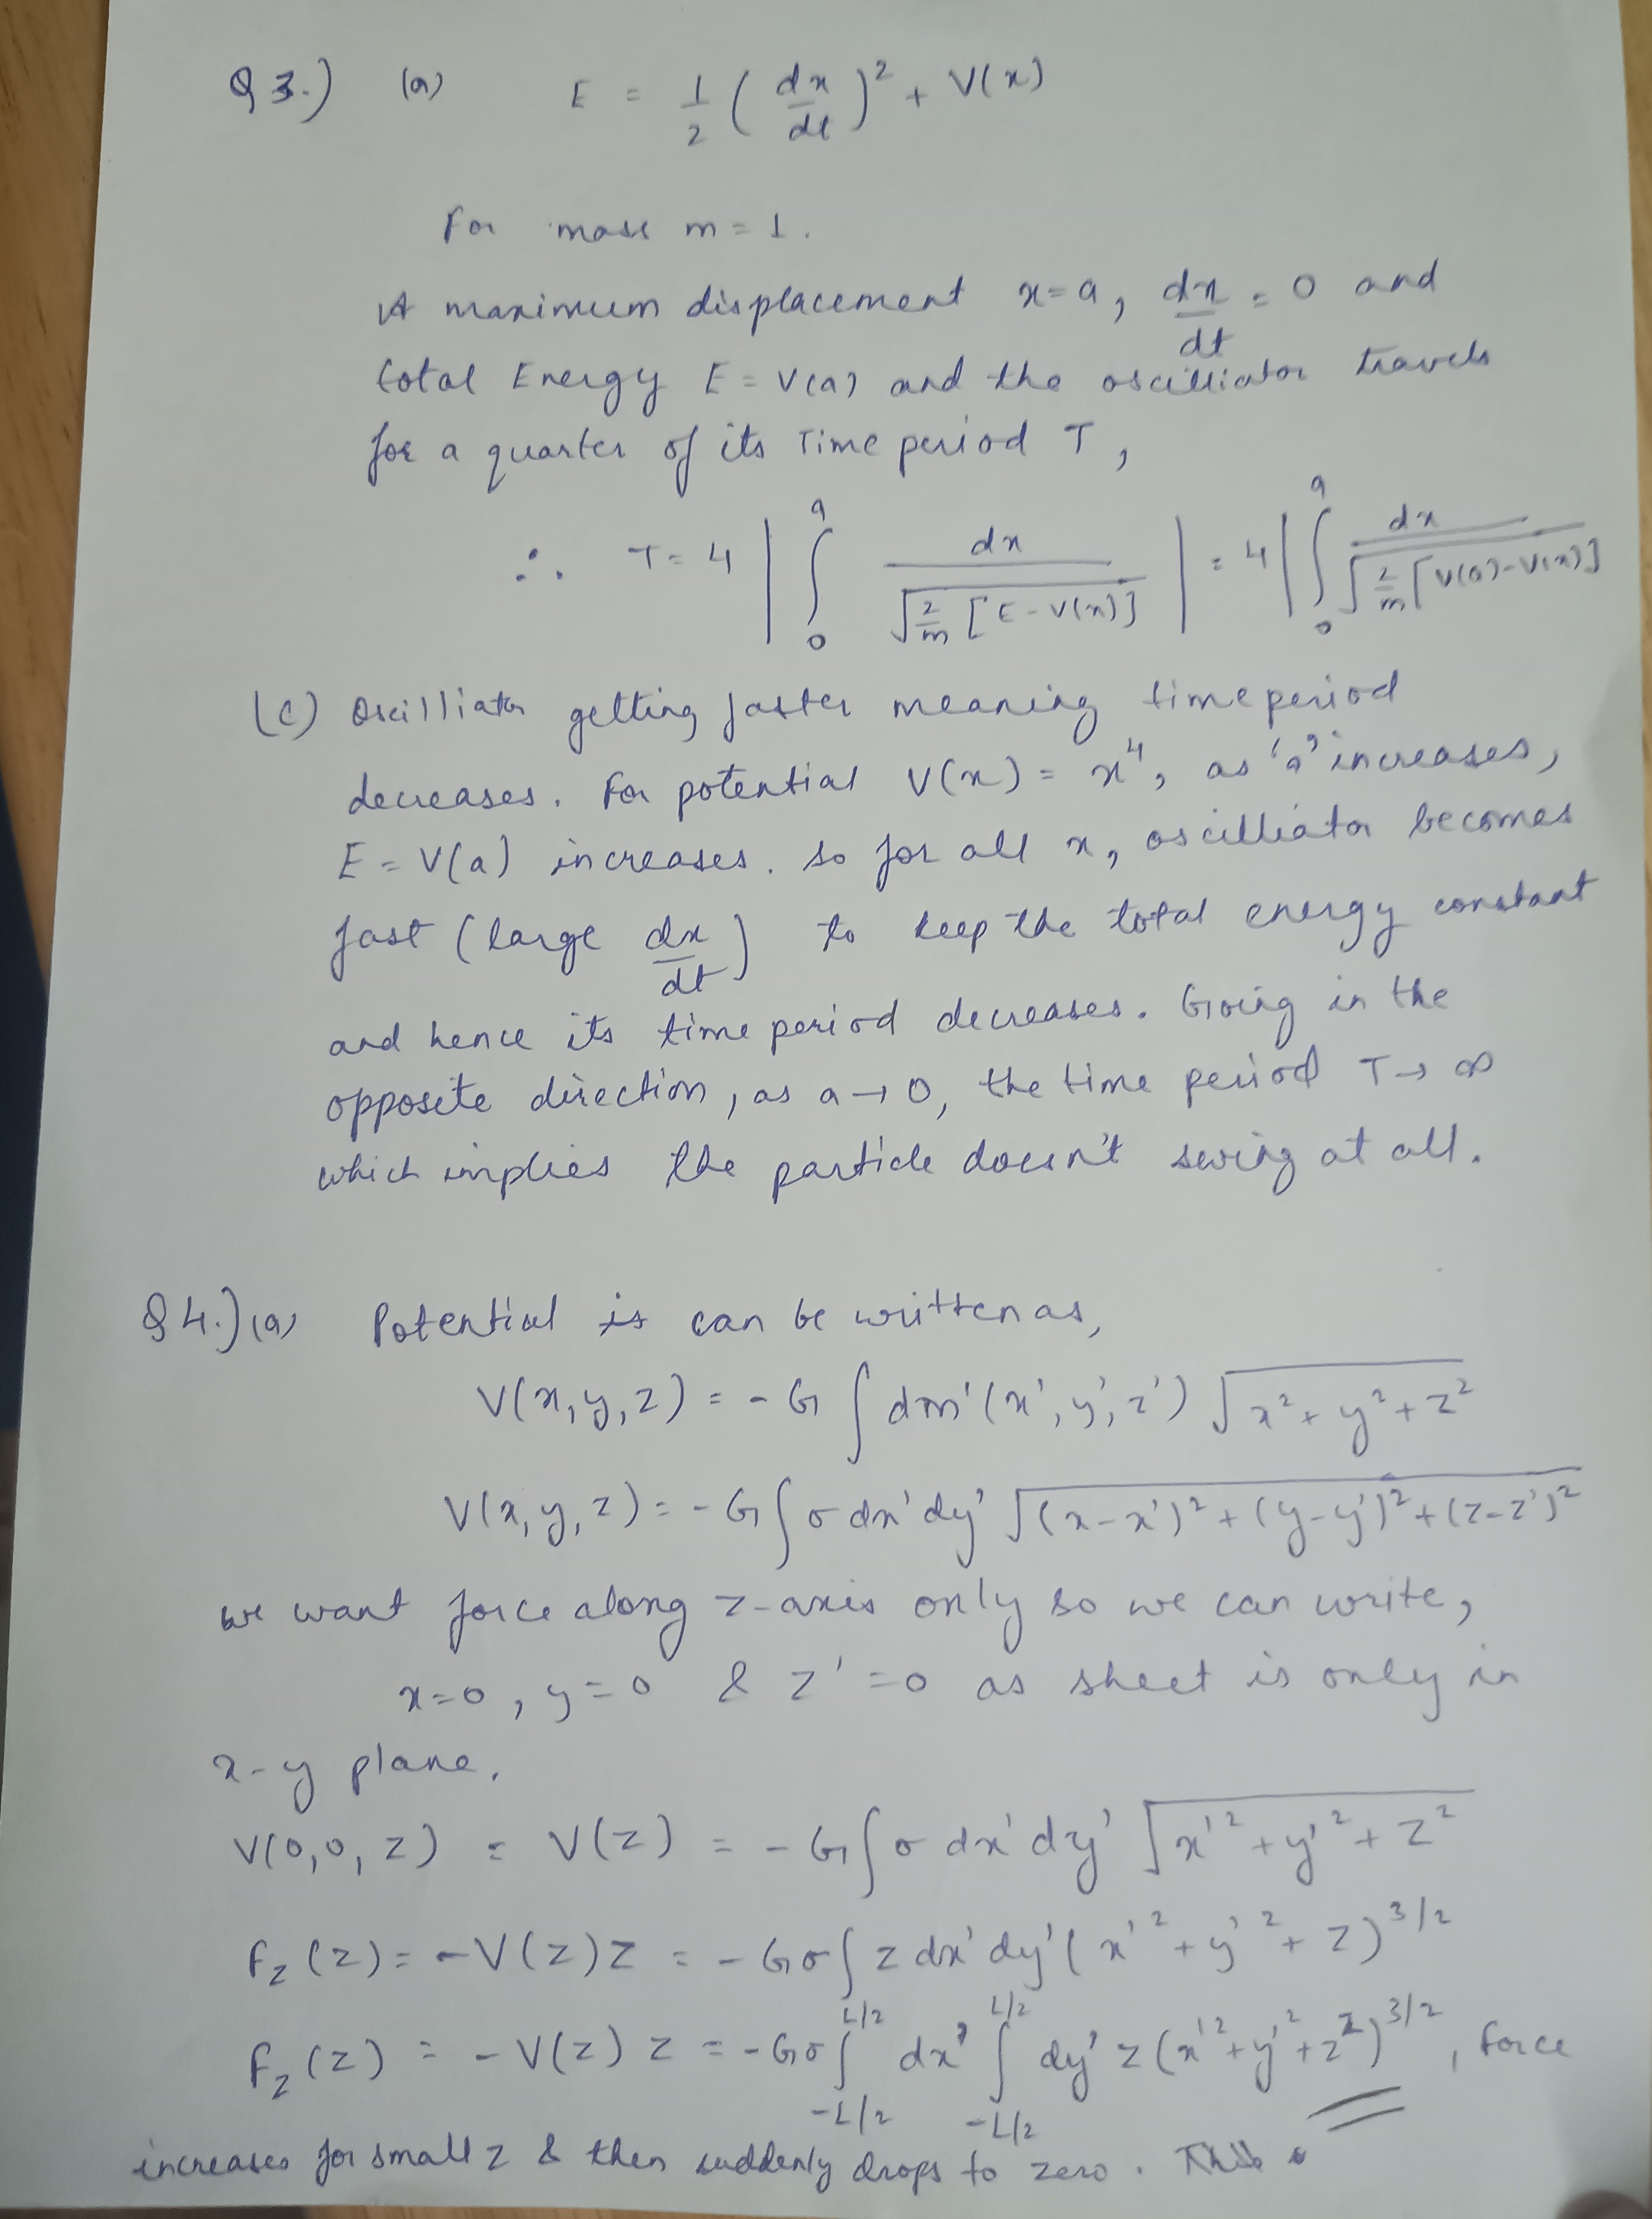 Q3.) (a) E = 1/2 (dx/dt)² + V(x)
For mass m = 1.
At maximum displacement x = a, dx/dt = 0 and
total Energy E = V(a) and the oscilliator travels
for a quarter of its Time period T,
∴ T = 4 | ∫₀ᵃ dx / √(2/m [E - V(x)]) | = 4 | ∫₀ᵃ dx / √(2/m [V(a) - V(x)]) |
(c) Oscilliator getting faster meaning time period
decreases. For potential V(x) = x⁴, as 'a' increases,
E = V(a) increases. So for all x, oscilliator becomes
fast (large dx/dt) to keep the total energy constant
and hence its time period decreases. Going in the
opposite direction, as a → 0, the time period T → ∞
which implies the particle doesn't swing at all.
Q4.) (a) Potential is can be written as,
V(x,y,z) = -G ∫ dm'(x',y',z') √(x² + y² + z²)
V(x,y,z) = -G ∫ σ dx'dy' √((x-x')² + (y-y')² + (z-z')²)
we want force along z-axis only so we can write,
x=0, y=0 & z'=0 as sheet is only in
x-y plane.
V(0,0,z) = V(z) = -G ∫ σ dx'dy' √(x'² + y'² + z²)
Fz(z) = -V(z)z = -Gσ ∫ z dx'dy' (x'² + y'² + z)^3/2
Fz(z) = -V(z)z = -Gσ ∫_{-L/2}^{L/2} dx' ∫_{-L/2}^{L/2} dy' z (x'² + y'² + z²)^3/2, force
increases for small z & then suddenly drops to zero.